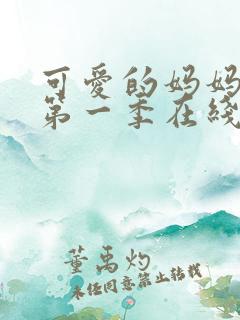 可爱的妈妈
第一季在线
董禹灼
未经同意禁止转载